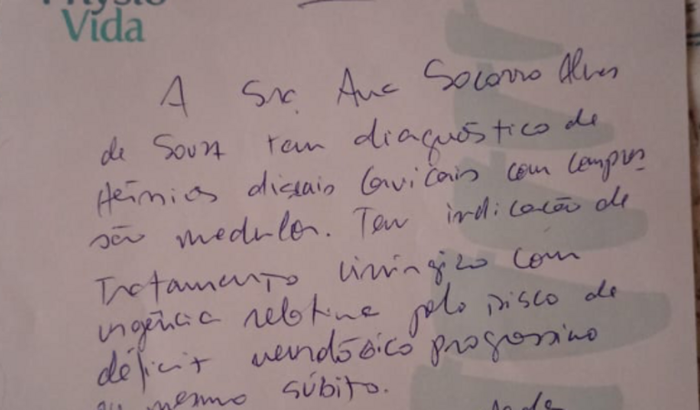 Physio
Vida
A Sra. Ana Socorro Alves
de Souza tem diagnóstico de
Hérnias discais cervicais com compres
são medular. Tem indicação de
Tratamento cirúrgico com
urgência relativa pelo risco de
déficit neurológico progressivo
ou mesmo súbito.